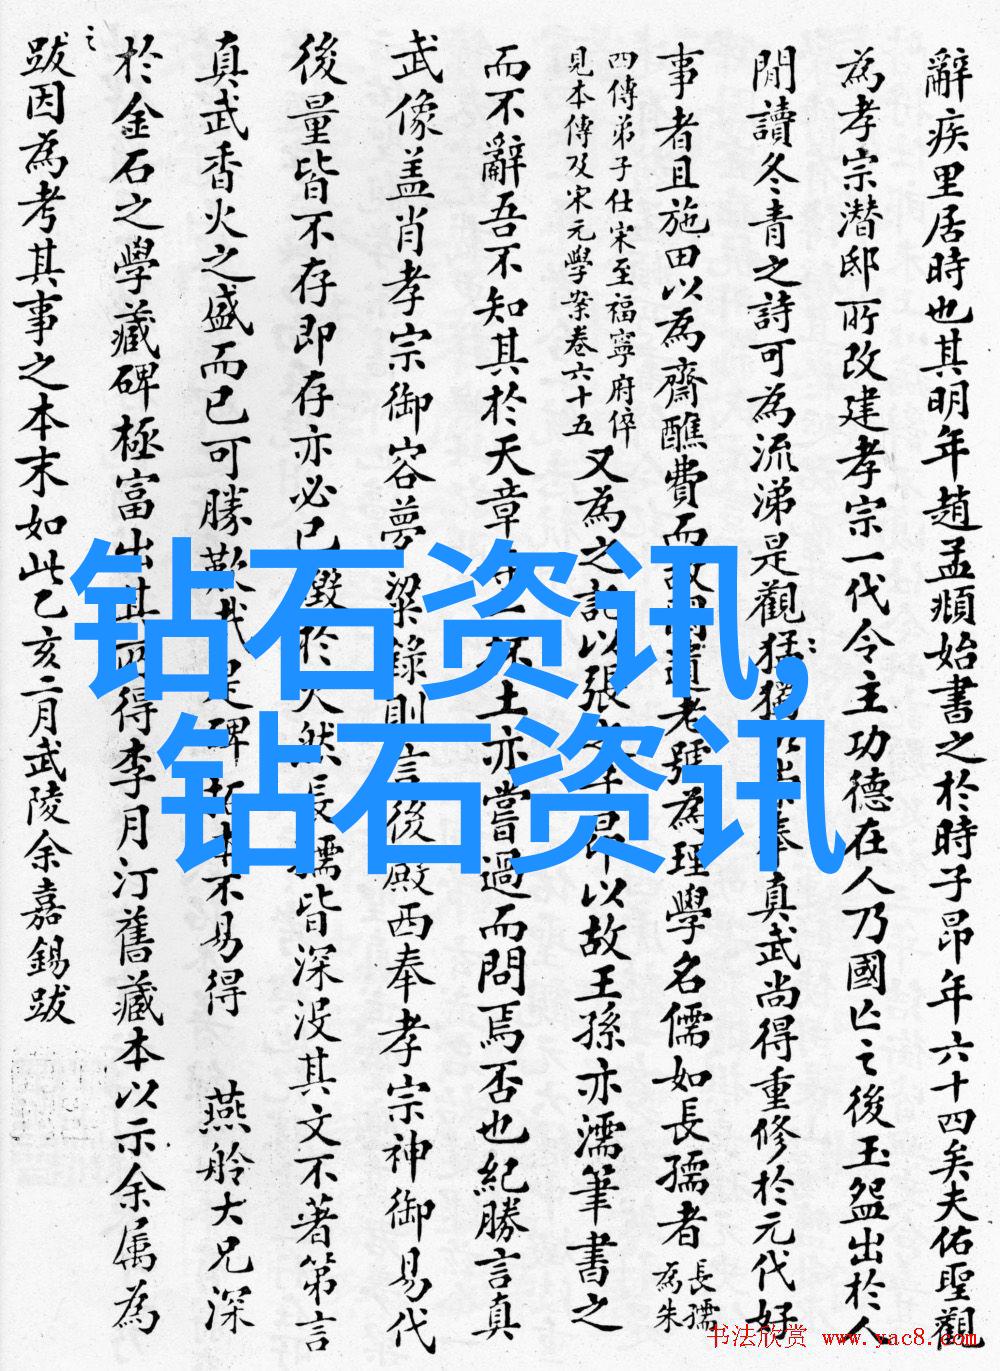 辭疾里居時也其明年趙孟頫始書之於時子昂年六十四矣夫佑聖觀
為孝宗潛邸所改建孝宗一代令主功德在人乃國亡之後玉盌出於人
閒讀冬青之詩可為流涕是觀奉真武尚得重修於元代好
事者且施田以為齋醮費而老號為理學名儒如長孺者
長孺
為朱
四傳弟子仕宋至福寧府倅
見本傳及宋元學案卷六十五
又為之記以張之昂以故王孫亦濡筆書之
而不辭吾不知其於天章土亦嘗過而問焉否也紀勝言真
武像盖肖孝宗御容夢粱錄則言後殿西奉孝宗神御易代
後量皆不存即存亦必已毀於火然長孺皆深没其文不著第言
真武香火之盛而已可勝歎哉是碑拓本不易得 燕舲大兄深
於金石之學藏碑極富出其所得李月汀舊藏本以示余属為
之
跋因為考其事之本末如此乙亥二月武陵余嘉錫跋
钻石资讯,
钻石资讯
书法欣赏 www.yac8.com